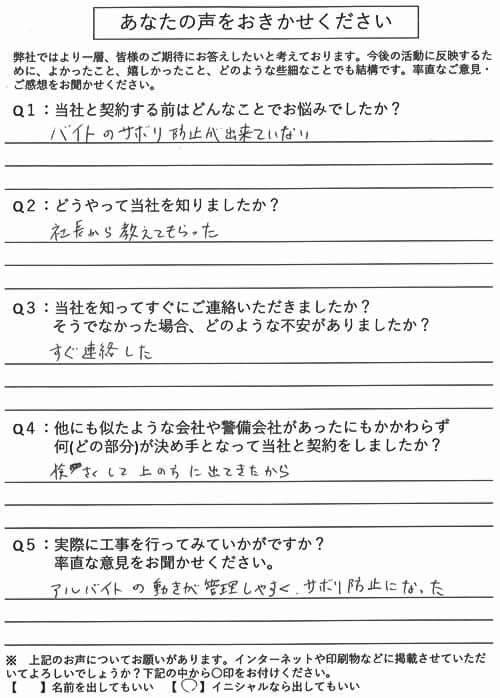 あなたの声をおきかせください
弊社ではより一層、皆様のご期待にお答えしたいと考えております。今後の活動に反映するた
めに、よかったこと、嬉しかったこと、どのような些細なことでも結構です。率直なご意見・
ご感想をお聞かせください。
Q1：当社と契約する前はどんなことでお悩みでしたか？
バイトのサボり防止が出来ていない
Q2：どうやって当社を知りましたか？
社長から教えてもらった
Q3：当社を知ってすぐにご連絡いただきましたか？
そうでなかった場合、どのような不安がありましたか？
すぐ連絡した
Q4：他にも似たような会社や警備会社があったにもかかわらず
何(どの部分)が決め手となって当社と契約をしましたか？
検さくして上の方に出てきたから
Q5：実際に工事を行ってみていかがですか？
率直な意見をお聞かせください。
アルバイトの動きが管理しやすく、サボり防止になった
※　上記のお声についてお願いがあります。インターネットや印刷物などに掲載させていただ
いてよろしいでしょうか？下記の中から〇印をお付けください。
【　　】名前を出してもいい　【〇】イニシャルなら出してもいい